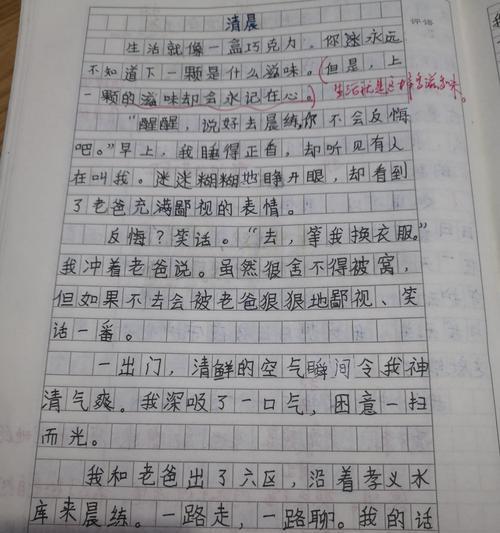 清晨
评语
生活就像一盒巧克力，你永远
不知道下一颗是什么滋味。（但是，上
一颗的滋味却会永记在心。）
生活就是这样
“醒醒，说好去晨练，你不会反悔
吧。”早上，我睡得正香，却听见有人
在叫我。迷迷糊糊地睁开眼，却看到
了老爸充满鄙视的表情。
反悔？笑话。“去，等我换衣服。”
我冲着老爸说。虽然很舍不得被窝，
但如果不去会被老爸狠狠地鄙视、笑
话一番。
一出门，清鲜的空气瞬间令我神
清气爽。我深吸了一口气，困意一扫
而光。
我和老爸出了六区，沿着孝义水
库来晨练。一路走，一路聊。我的话